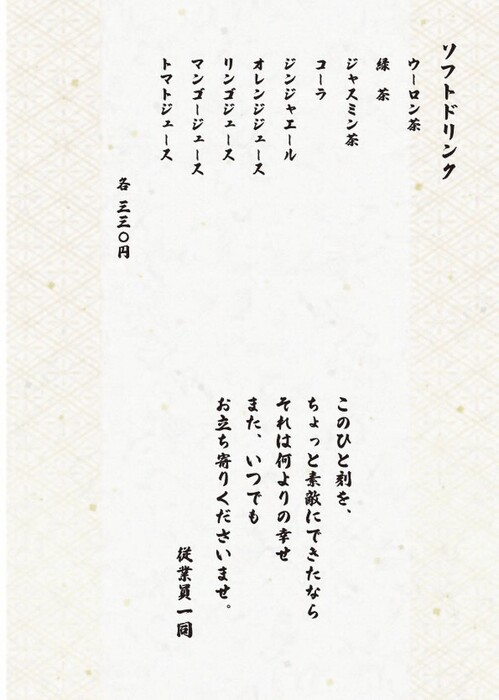 ソフトドリンク
ウーロン茶
緑茶
ジャスミン茶
コーラ
ジンジャエール
オレンジジュース
リンゴジュース
マンゴージュース
トマトジュース
各 三三〇円
このひと刻を、
ちょっと素敵にできたなら
それは何よりの幸せ
また、いつでも
お立ち寄りくださいませ。
従業員一同